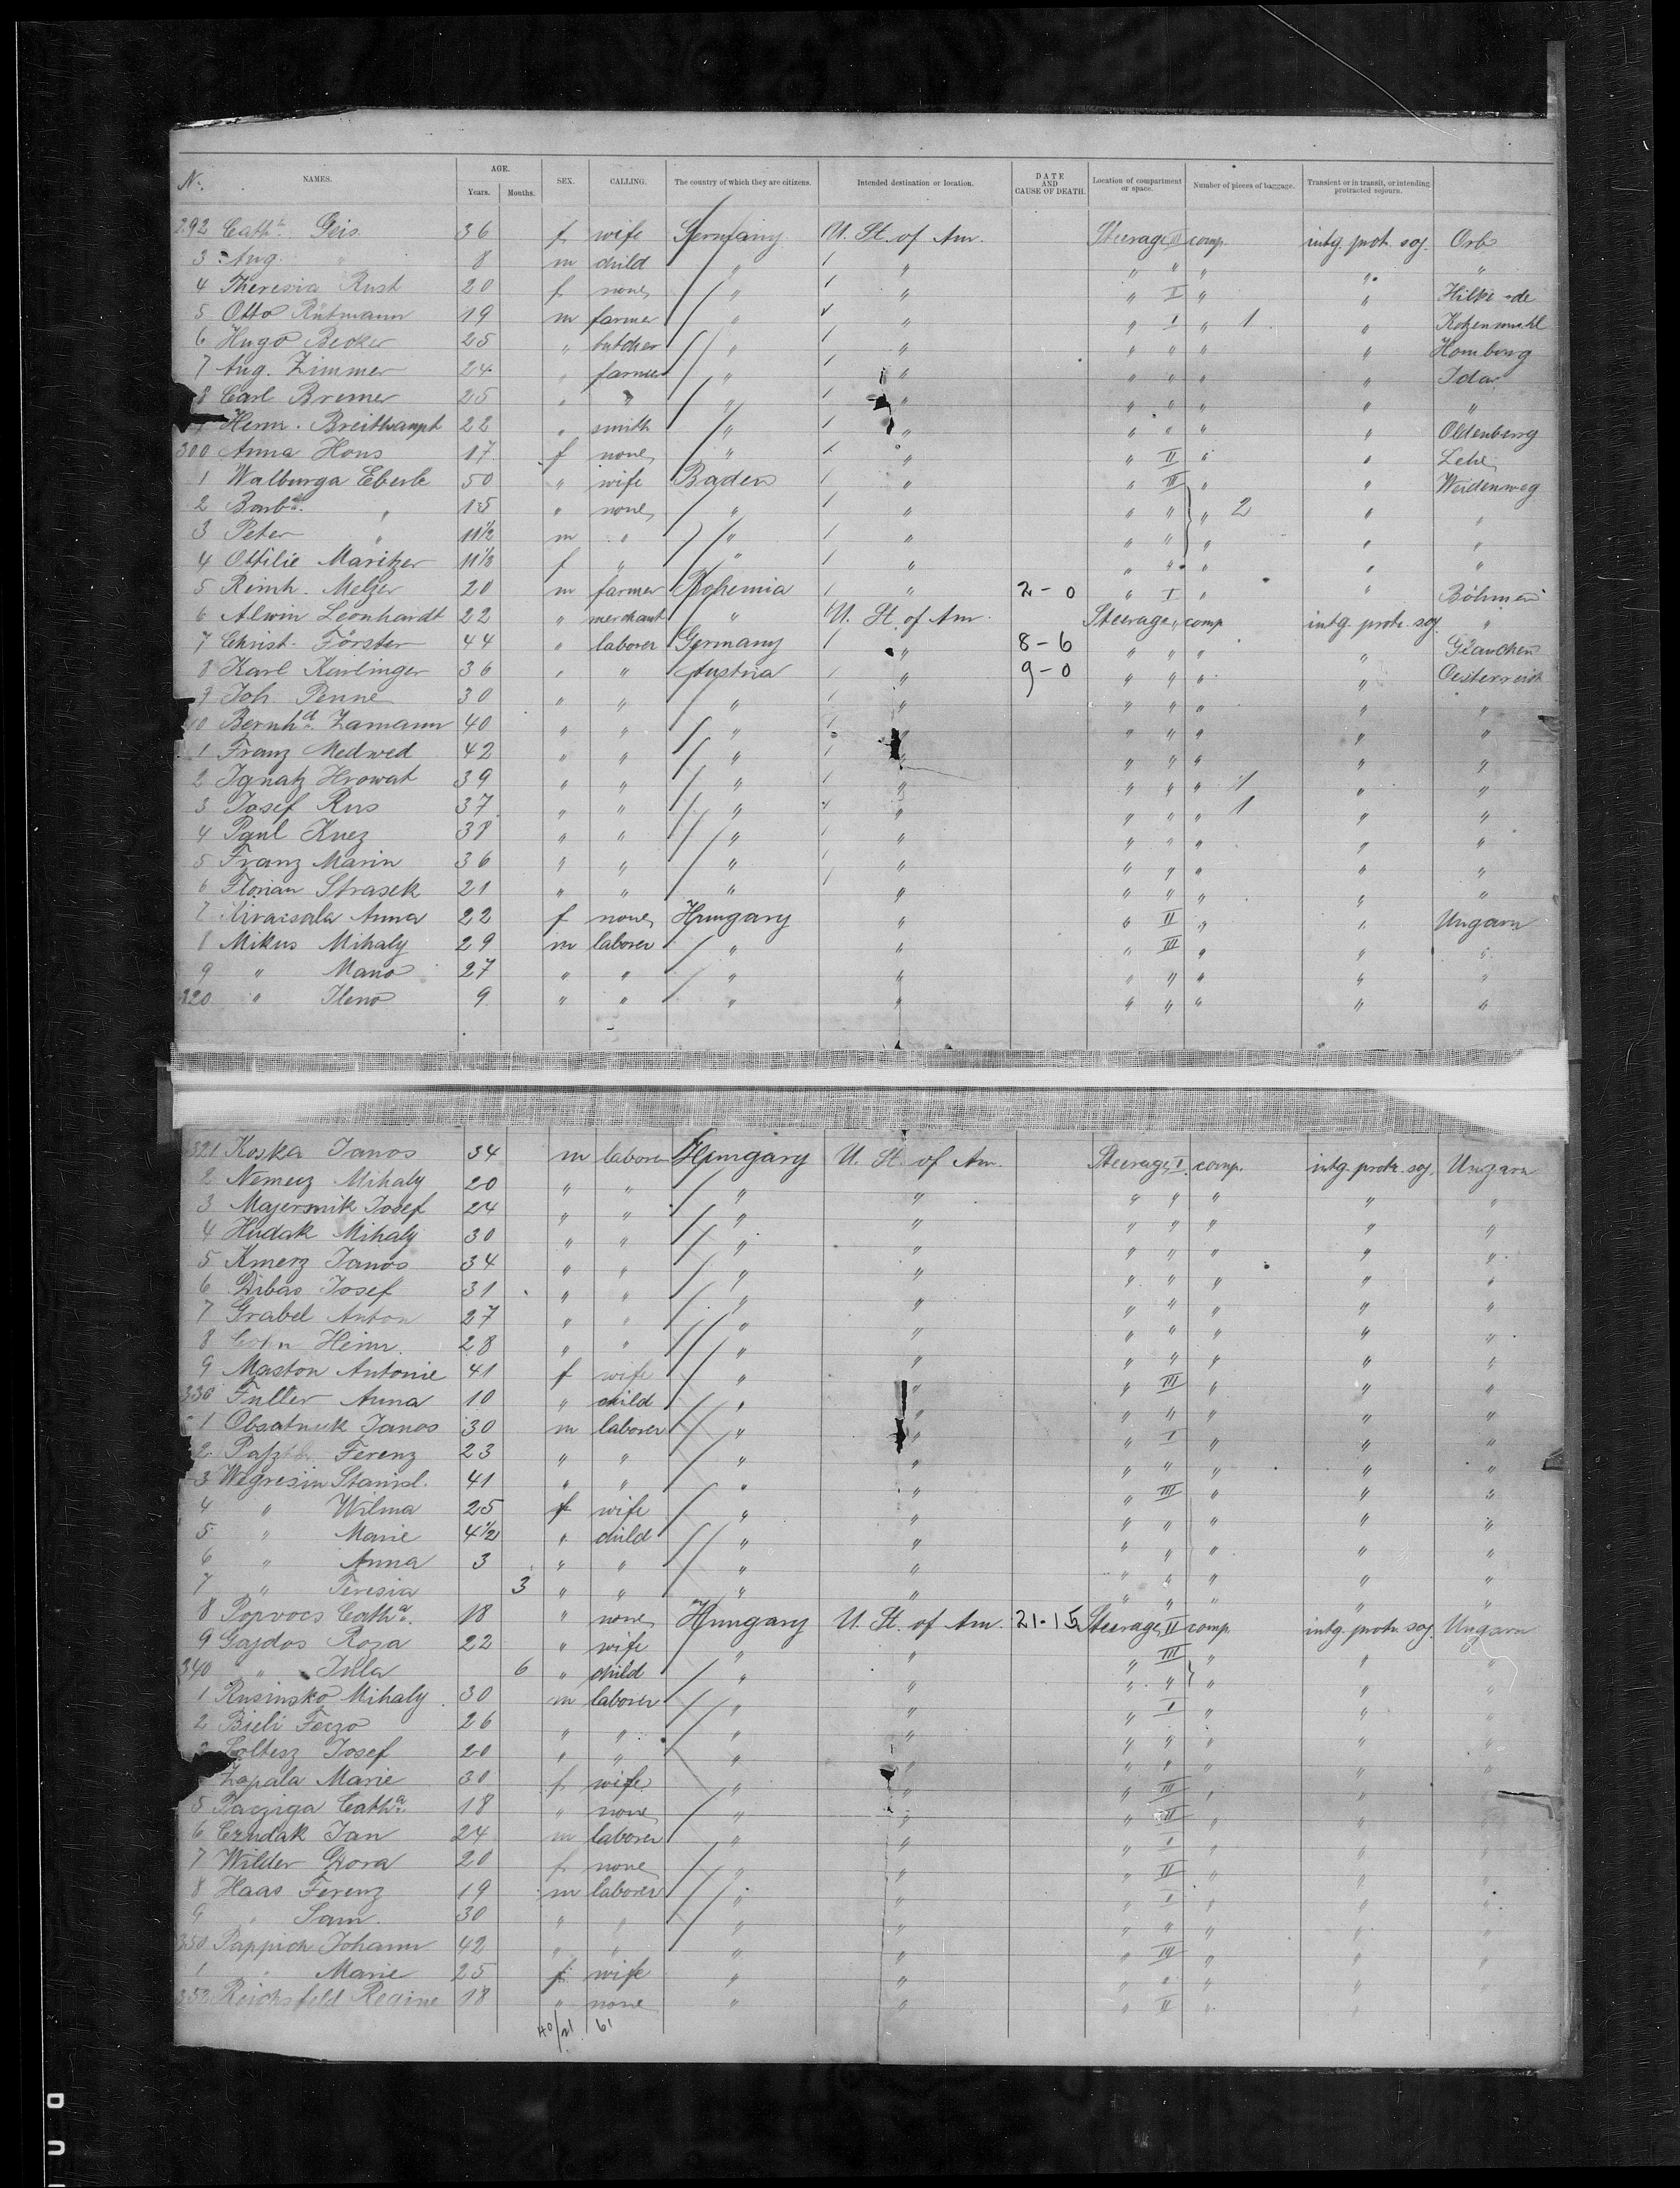 N:. NAMES. AGE. Years. Months. SEX. CALLING. The country of which they are citizens. Intended destination or location. DATE AND CAUSE OF DEATH. Location of compartment or space. Number of pieces of baggage. Transient or in transit, or intending protracted sojourn.
292 Cath.a Geis 36 f wife Germany U. St. of Am. Steerage III comp. intg. prot. soj. Orb
3 Aug. " 8 m child " " " " " " "
4 Theresia Rust 20 f none " " " II " "
5 Otto Rütmann 19 m farmer " " " I " 1 "
6 Hugo Becker 25 " butcher " " " " " " Homberg
7 Aug. Zimmer 24 " farmer " " " " " " Idar
8 Carl Bremer 25 " " " " " " " " "
Herm. Breithaupt 22 " smith " " " " " " Oldenburg
300 Anna Hons 17 f none " " " II " " Lehe
1 Walburga Eberle 50 " wife Baden " " III " " Weidenweg
2 Barb.a " 15 " none " " " " " 2 " "
3 Peter " 11 1/2 m " " " " " " " "
4 Ottilie Maritzer 11 1/2 f " " " " " " " "
5 Reinh. Melzer 20 m farmer Bohemia " 2-0 " I " " Böhmen
6 Alwin Leonhardt 22 " merchant " U. St. of Am. Steerage " comp intg. protr. soj. "
7 Christ. Förster 44 " laborer Germany " 8-6 " " " " Glauchen
8 Karl Karlinger 36 " " Austria " 9-0 " " " " Oesterreich
9 Joh. Penne 30 " " " " " " " " "
10 Bernh.d Zamann 40 " " " " " " " " "
1 Franz Medwed 42 " " " " " " " " "
2 Ignatz Hrowat 39 " " " " " " " 1 " "
3 Josef Rus 37 " " " " " " " 1 " "
4 Paul Knez 38 " " " " " " " " "
5 Franz Marin 36 " " " " " " " " "
6 Florian Strasek 21 " " " " " " " " "
7 Anna 22 f none Hungary " " II " " Ungarn
8 Mikus Mihaly 29 m laborer " " " III " " "
9 " Mano 27 " " " " " " " " "
320 " Ileno 9 " " " " " " " " "
321 Koska Janos 34 m laborer Hungary U. St. of Am. Steerage I comp. intg. protr. soj. Ungarn
2 Nemecz Mihaly 20 " " " " " " " " "
3 Majersnik Josef 24 " " " " " " " " "
4 Hudak Mihaly 30 " " " " " " " " "
5 Kmerz Janos 34 " " " " " " " " "
6 Dibas Josef 31 " " " " " " " " "
7 Grabel Anton 27 " " " " " " " " "
8 Cohn Heinr. 28 " " " " " " " " "
9 Maston Antonie 41 f wife " " " III " " "
330 Fuller Anna 10 " child " " " " " " "
1 Obsatnuk Janos 30 m laborer " " " I " " "
2 Ferenz 23 " " " " " " " " "
3 Wegresin Stanisl. 41 " " " " " III " " "
4 " Wilma 25 f wife " " " " " " "
5 " Marie 4 1/2 " child " " " " " " "
6 " Anna 3 " " " " " " " " "
7 " Teresia 3 " " " " " " " " "
8 Popvocs Cath.a 18 " none Hungary U. St. of Am. 21-15 Steerage II comp. intg. protr. soj. Ungarn
9 Gajdos Roza 22 " wife " " " III " " "
340 " Julla 6 " child " " " " " " "
1 Rusinsko Mihaly 30 m laborer " " " I " " "
2 Bieli Ferzo 26 " " " " " " " " "
Soltesz Josef 20 " " " " " " " " "
Zapala Marie 30 f wife " " " III " " "
5 Pacziga Cath.a 18 " none " " " II " " "
6 Czudak Jan 24 m laborer " " " I " " "
7 Wilder Dora 20 f none " " " II " " "
8 Haas Ferenz 19 m laborer " " " I " " "
9 " Sam. 30 " " " " " " " " "
350 Pappich Johann 42 " " " " " III " " "
1 " Marie 25 f wife " " " " " " "
352 Reichsfeld Regine 18 " none " " " II " "
40/21 61